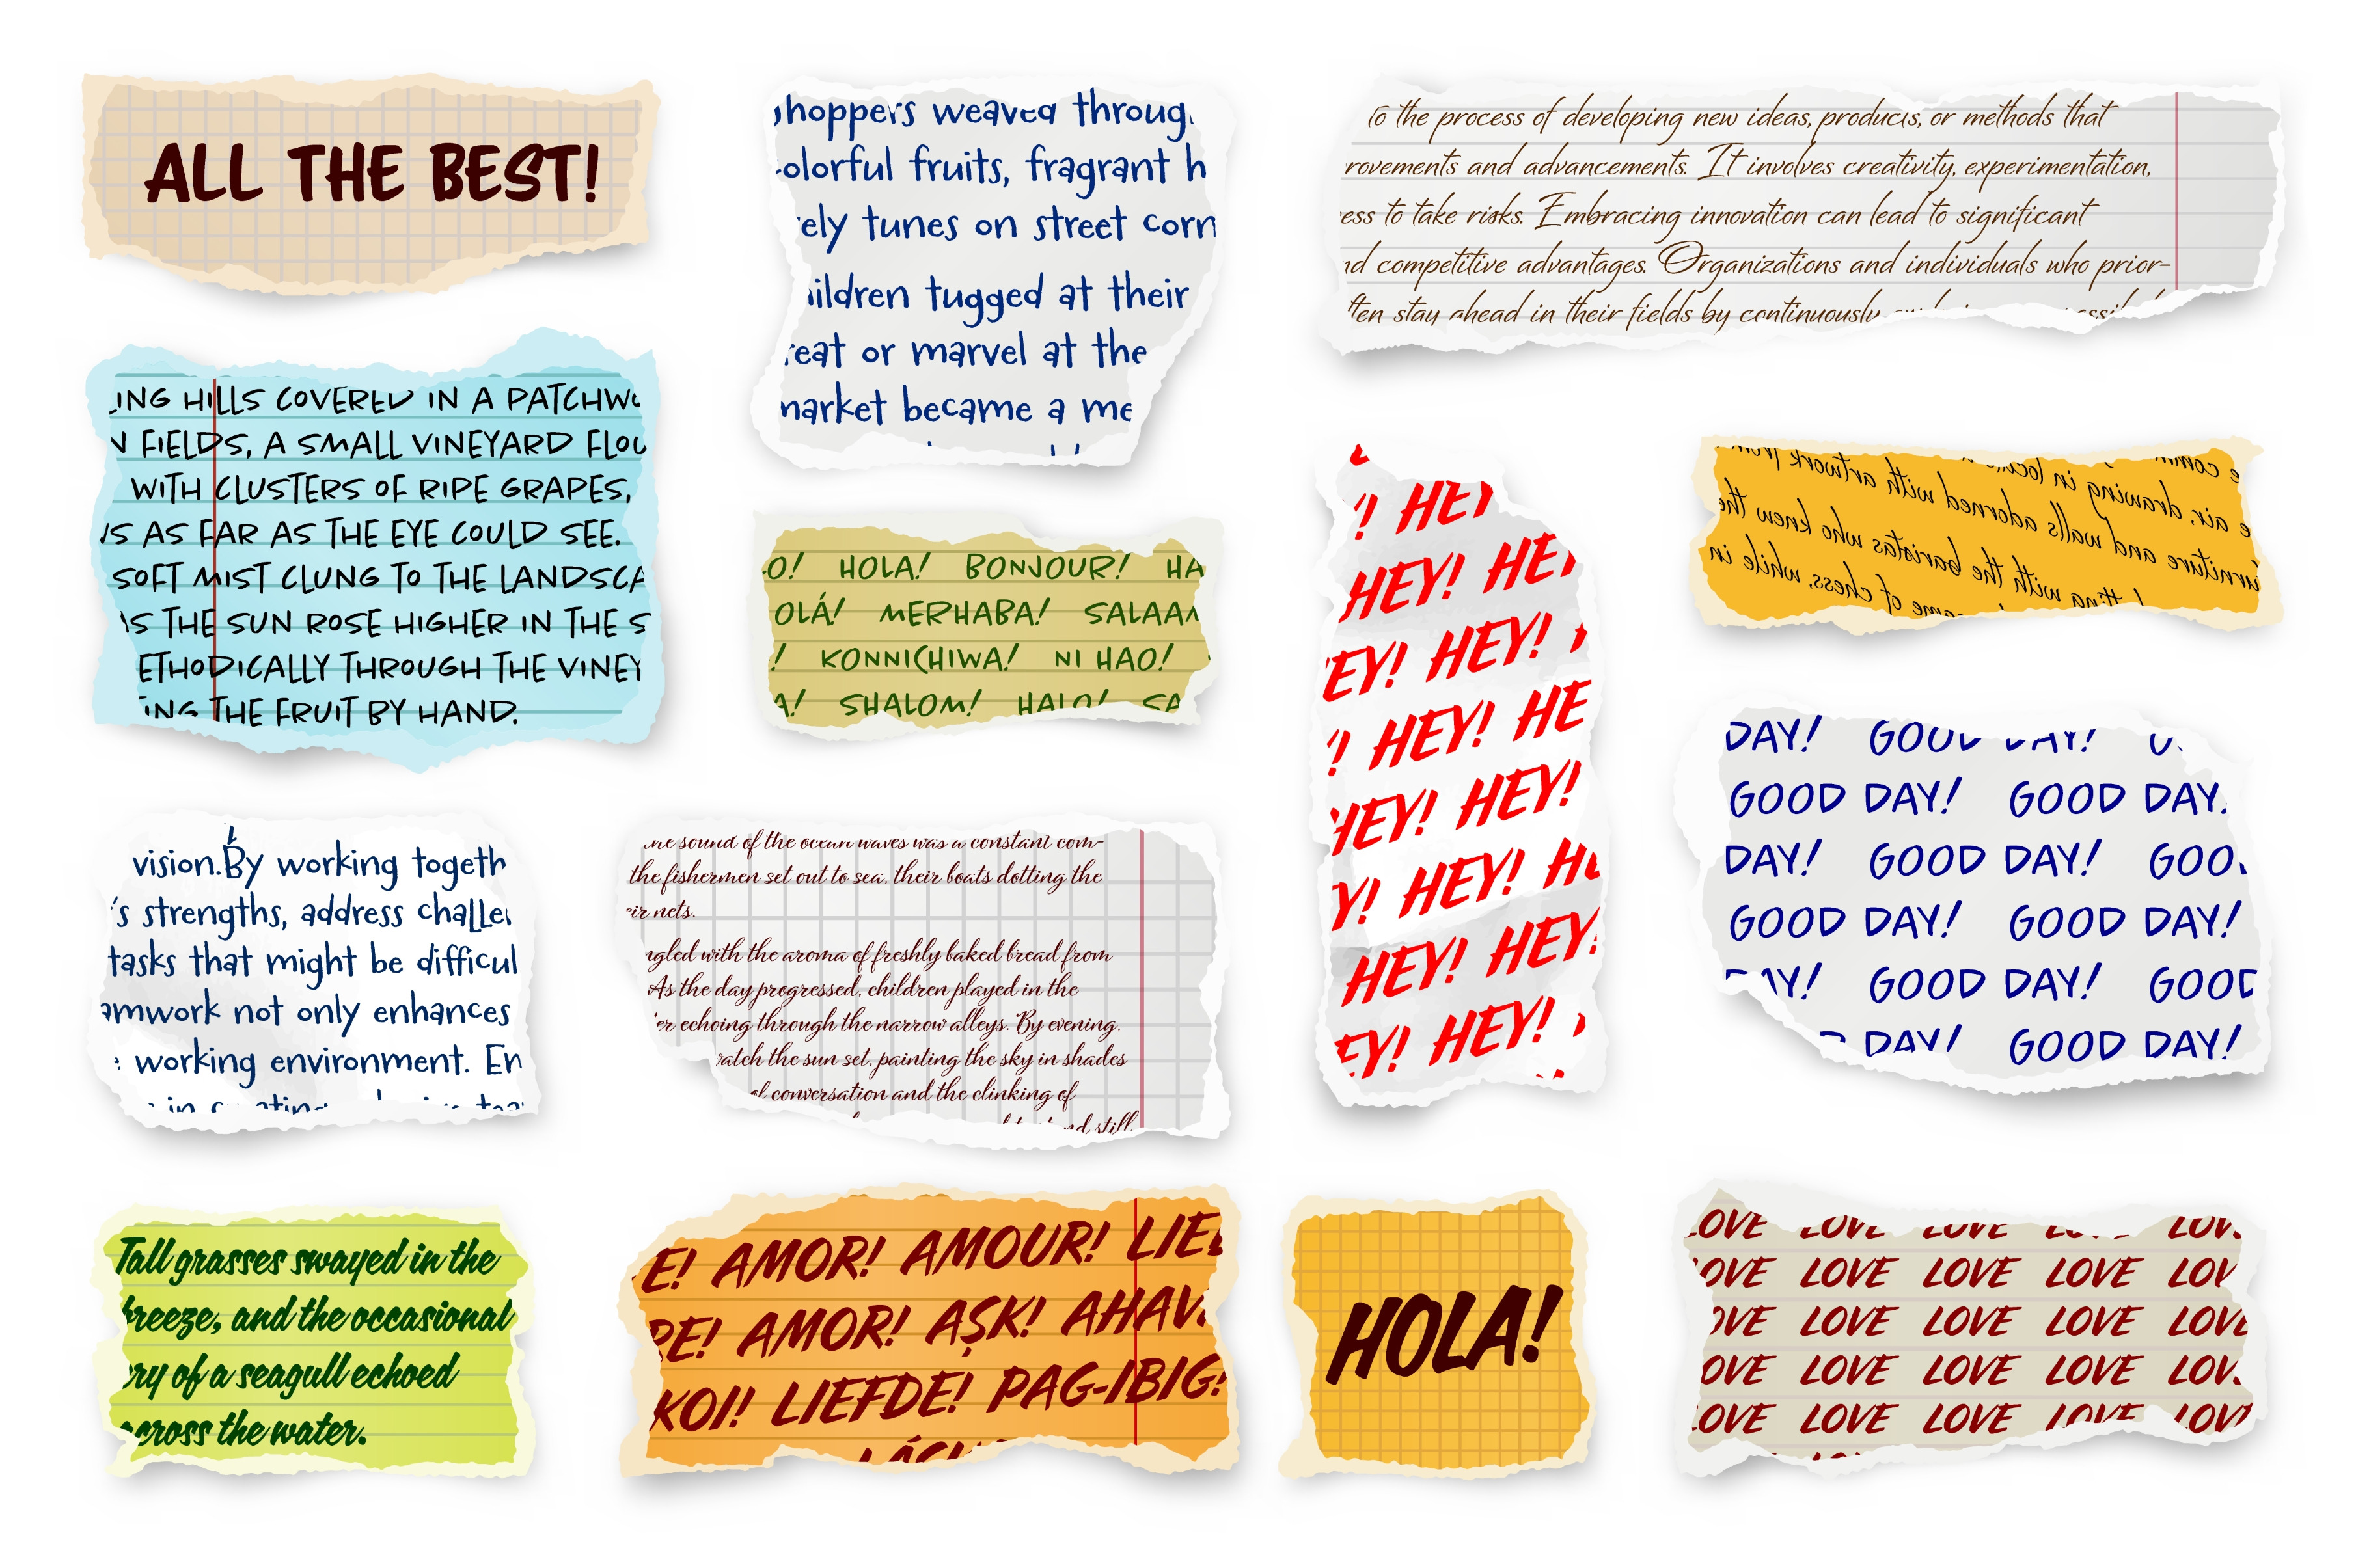 ALL THE BEST!
hoppers weaved throug
olorful fruits, fragrant h
ely tunes on street corn
ildren tugged at their
reat or marvel at the
market became a me
to the process of developing new ideas, products, or methods that
rovements and advancements. It involves creativity, experimentation,
ess to take risks. Embracing innovation can lead to significant
nd competitive advantages. Organizations and individuals who prior-
ften stay ahead in their fields by continuously
ING HILLS COVERED IN A PATCHWO
N FIELDS, A SMALL VINEYARD FLOU
WITH CLUSTERS OF RIPE GRAPES,
S AS FAR AS THE EYE COULD SEE.
SOFT MIST CLUNG TO THE LANDSCA
AS THE SUN ROSE HIGHER IN THE S
ETHODICALLY THROUGH THE VINEY
ING THE FRUIT BY HAND.
O! HOLA! BONJOUR! HA
OLÁ! MERHABA! SALAAM
! KONNICHIWA! NI HAO!
A! SHALOM! HALO! SA
! HEY
HEY! HEY
EY! HEY!
! HEY! HE
HEY! HEY!
Y! HEY! HE
HEY! HEY!
EY! HEY!
e air, drawing in
urniture and walls adorned with artwork from
tting with the baristas who knew the
ame of chess, while in
DAY! GOOD DAY!
GOOD DAY! GOOD DAY!
DAY! GOOD DAY! GOO
GOOD DAY! GOOD DAY!
DAY! GOOD DAY! GOOD
DAY! GOOD DAY!
vision.By working togeth
's strengths, address challe
tasks that might be difficul
amwork not only enhances
working environment. En
the sound of the ocean waves was a constant com-
the fishermen set out to sea, their boats dotting the
eir nets.
ngled with the aroma of freshly baked bread from
As the day progressed, children played in the
er echoing through the narrow alleys. By evening,
atch the sun set, painting the sky in shades
of conversation and the clinking of
nd still
Tall grasses swayed in the
breeze, and the occasional
cry of a seagull echoed
across the water.
E! AMOR! AMOUR! LIEB
RE! AMOR! AŞK! AHAVA
KOI! LIEFDE! PAG-IBIG!
LÁSK
HOLA!
LOVE LOVE LOVE LOVE LOV
OVE LOVE LOVE LOVE LOV
OVE LOVE LOVE LOVE LOVE
OVE LOVE LOVE LOVE LOV
LOVE LOVE LOVE LOVE LOV